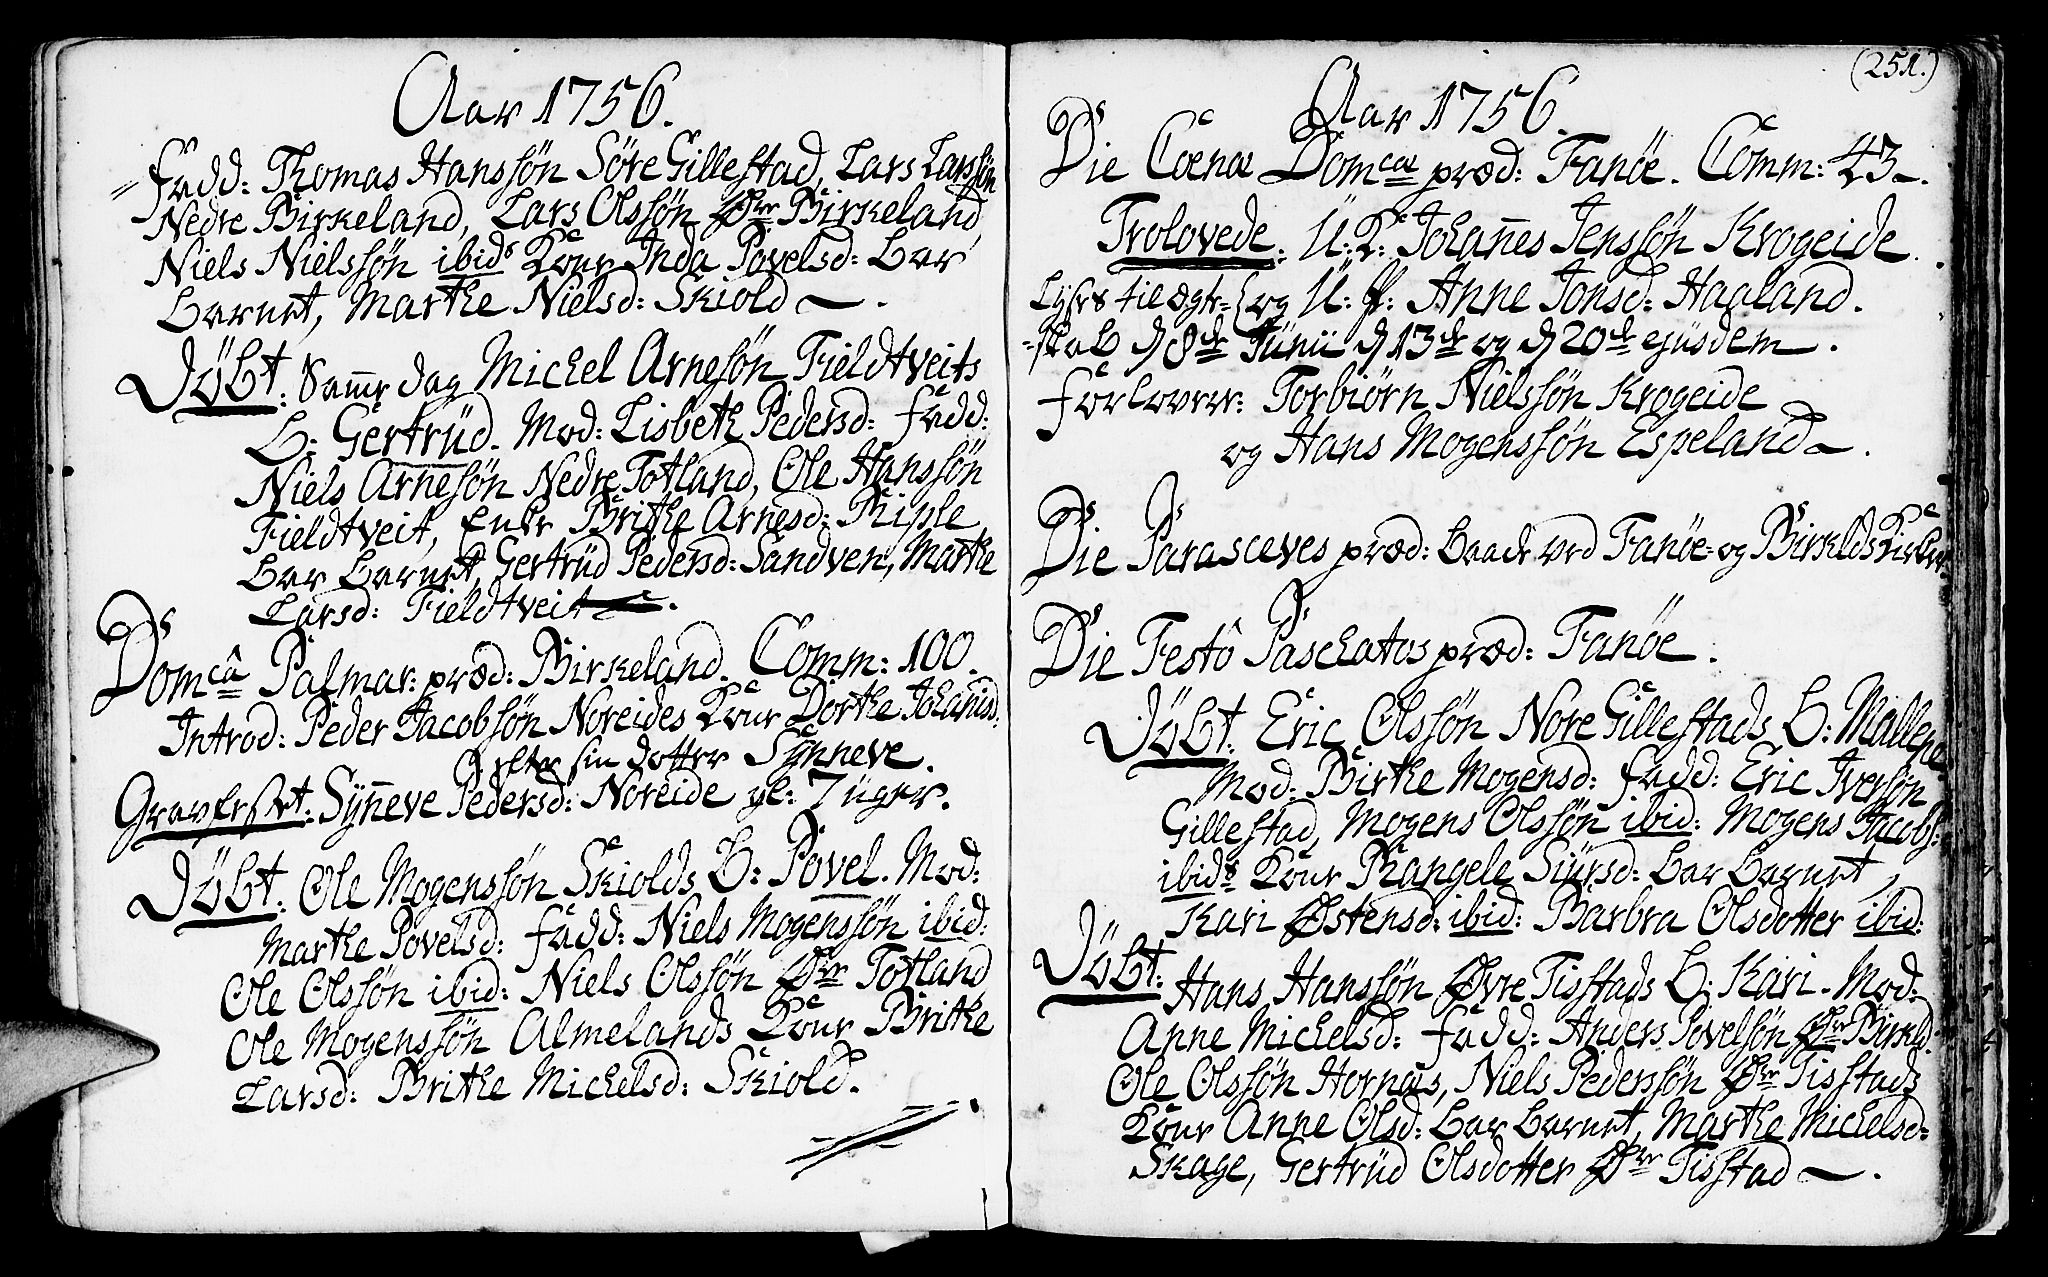 Aar 1756.
Fadd: Thomas Hanssön Söre Gillestad, Lars Larssön
Nedre Birkeland, Lars Olssön Øvr Birkeland,
Niels Nielssön ibid: Kone Inda Povelsd: bar
barnet, Marthe Nielsd: Skiold.
Döbt: Samme dag Michel Arnesön Fieldtveits
B: Gertrüd. Mod: Lisbeth Pedersd: Fadd:
Niels Arnesön Nedre Totland, Ole Hanssön
Fieldtveit, Enke Brithe Arnesd: Riple
bar barnet, Gertrüd Pedersd: Sandven, Marthe
Larsd: Fieldtveit.
Domcâ Palmar: præd: Birkeland. Comm: 100.
Introd: Peder Jacobsön Noreides Kone Dorthe Johanisd:
efter sin dotter Sÿnneve.
Gravfestet: Sÿn̄eve Pedersd: Noreide gl: 7 üger.
Döbt: Ole Mogenssön Skiolds B: Povel. Mod:
Marthe Povelsd: Fadd: Niels Mogenssön ibid:
Ole Olssön ibid: Niels Olssön Øvr Totland
Ole Mogenssön Almelands Kone Brithe
Larsd: Brithe Michelsd: Skiold.
(251.)
Aar 1756.
Die Coenæ Domcæ præd: Fanöe. Comm: 43.
Trolovede: U: K: Johan̄es Jenssön Krogeide
Lyses til ægte- og U: P: Anne Jonsd: Hagland.
-skab d 8de Junii d 13de og d 20de ejusdem.
Forlovere: Torbiörn Nielssön Krogeide
og Hans Mogenssön Espeland.
Die Parasceves præd: baade ved Fanöe- og Birklds Kirker.
Die Festô Paschatos præd: Fanöe.
Döbt: Eric Olssön Nore Gillestads B: Mallene
Mod: Birthe Mogensd: Fadd: Eric Iversön
Gillestad, Mogens Olssön ibid: Mogens Jacobs:
ibids Kone Rangele Siursd: bar barnet,
Kari Østensd: ibid: Barbra Olsdotter ibid:
Döbt: Hans Hanssön Øvre Tisstads B: Kari. Mod:
Anne Michelsd: Fadd: Anders Povelsön Øvr Birkld:
Ole Olssön Hornæs, Niels Pederssön Øvr Tisstads
Kone Anne Olsd: bar barnet, Marthe Michelsd:
Skage, Gertrüd Olsdotter Øvr Tisstad.